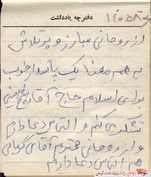 دفترچه یادداشت
از روحانی مبارز و پرتلاش
به هم معنا یک پاسدار خوب
برای اسلام حاج آقای
تشکر می کنم و التماس دعا دارم
و از روحانی محترم آقای
هم التماس دعا دارم